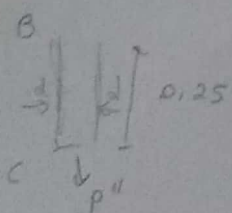 B
d d 0,25
C
p"